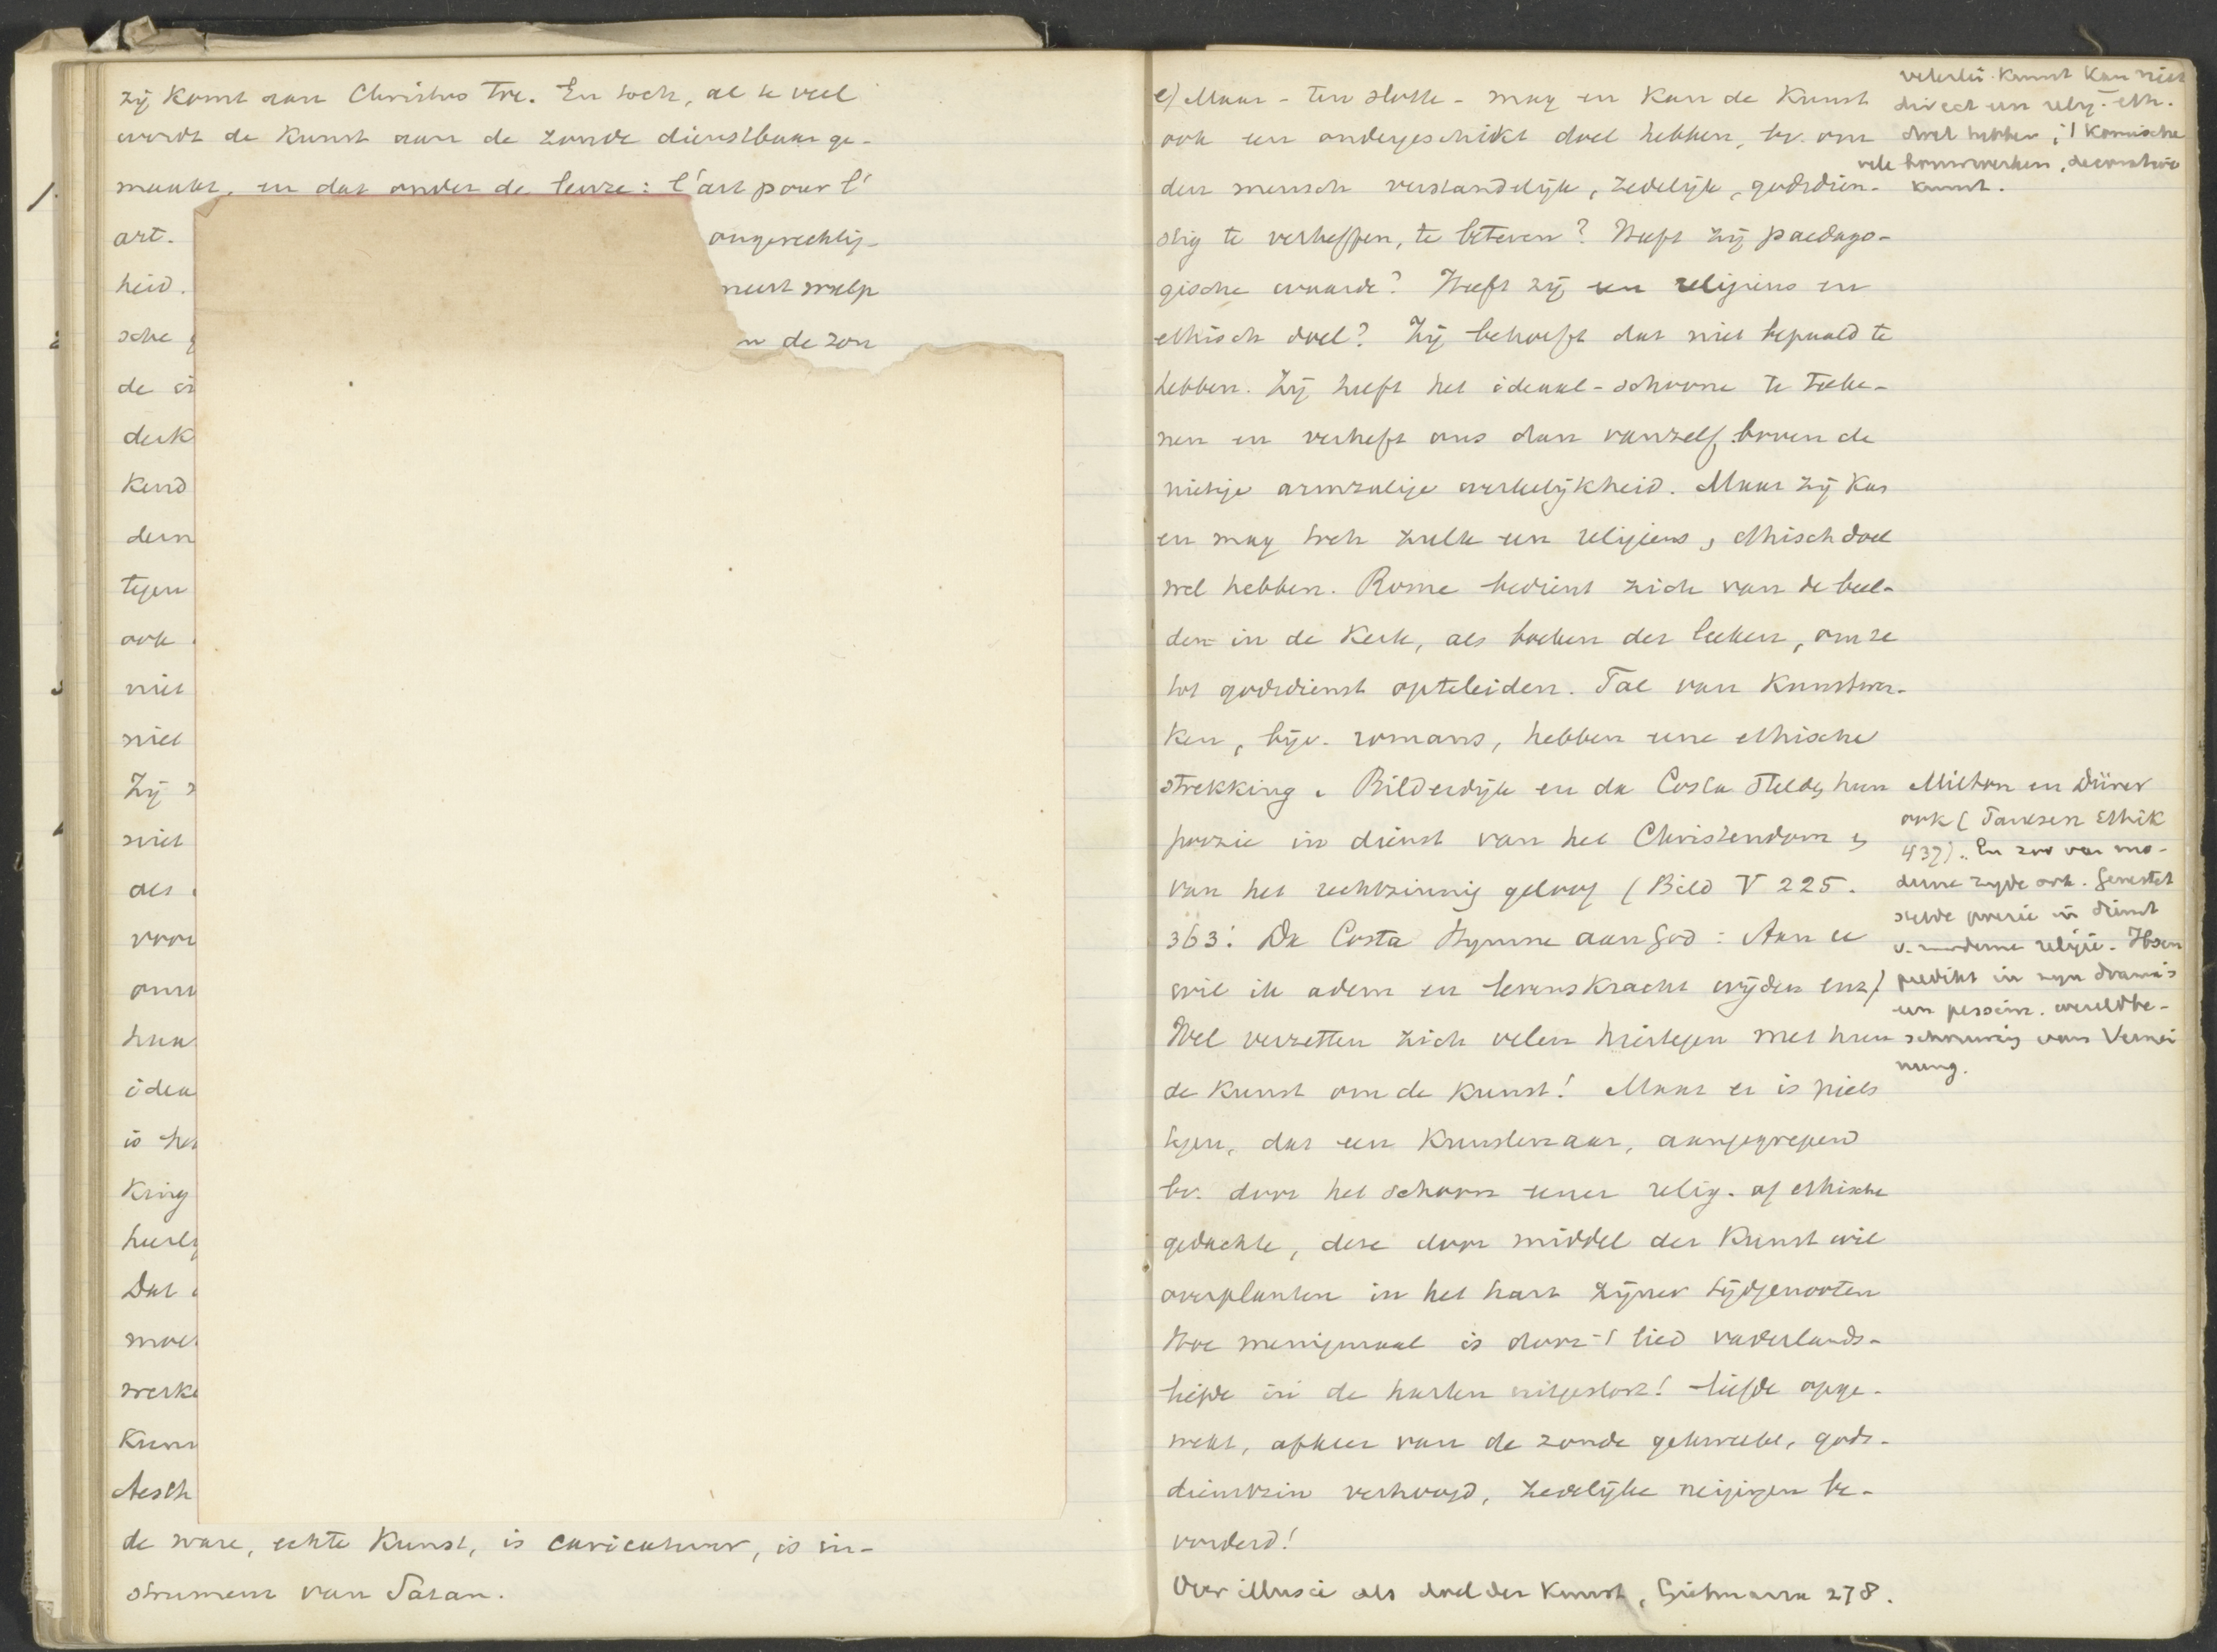 zij komt aan Christus toe. En toch, al te veel
wordt de kunst aan de zonde dienstbaar ge-
maakt, en dat onder de leuze: l'art pour l'
art.
ongerechtig-
heid.
meest
sche
de zon
de
derk
kend
dern
tegen
ook
niet
niet
Zij
niet
als
voor
haar
idea
is het
king
heerl
Dat
moe
werke
Kuns
Aesth
de ware, echte kunst, is caricatuur, is in-
strument van Satan.
1.
2
3
e) Maar - ten slotte - mag en kan de kunst
ook een ondergeschikt doel hebben, bv. om
den mensch verstandelijk, zedelijk, godsdien-
stig te verheffen, te beteren? Heeft zij paedago-
gische waarde? Heeft zij een religieus en
ethisch doel? Zij behoeft dat niet bepaald te
hebben. Zij heeft het ideaal-schoone te teeke-
nen en verheft ons dan vanzelf boven de
nietige armzalige werkelijkheid. Maar zij kan
en mag toch zulk een religieus, ethisch doel
wel hebben. Rome bedient zich van de beel-
den in de kerk, als boeken der leeken, om ze
tot godsdienst opteleiden. Tal van kunstwer-
ken, bijv. romans, hebben eene ethische
strekking. Bilderdijk en da Costa stelden hun
poezie in dienst van het Christendom en
van het rechtzinnig geloof (Bild V 225.
363. Da Costa Hymne aan God: Aan U
wil ik adem en levenskracht wijden enz)
Wel verzetten zich velen hiertegen met hun
de kunst om de kunst! Maar er is niets
tegen, dat een kunstenaar, aangegrepen
bv. door het schoon eener relig. of ethische
gedachte, deze door middel der kunst wil
overplanten in het hart zijner tijdgenooten
Hoe menigmaal is door 't lied vaderlands-
liefde in de harten uitgestort! liefde opge-
wekt, afkeer van de zonde gekweekt, gods-
dienstzin verhoogd, zedelijke neigingen be-
vorderd!
Over illusie als doel der kunst, Gietmann 278.
velerlei kunst kan niet
direct een relig.-eth.
doel hebben, 't komische
vele bouwwerken, decoratieve
kunst.
Milton en Dürer
ook (Paulsen Ethik
437). En zoo van mo-
derne zijde ook. Genestet
stelde poezie in dienst
v. moderne religie. Ibsen
predikt in zijn drama's
een pessim. wereldbe-
schouwing van Vernei
nung.